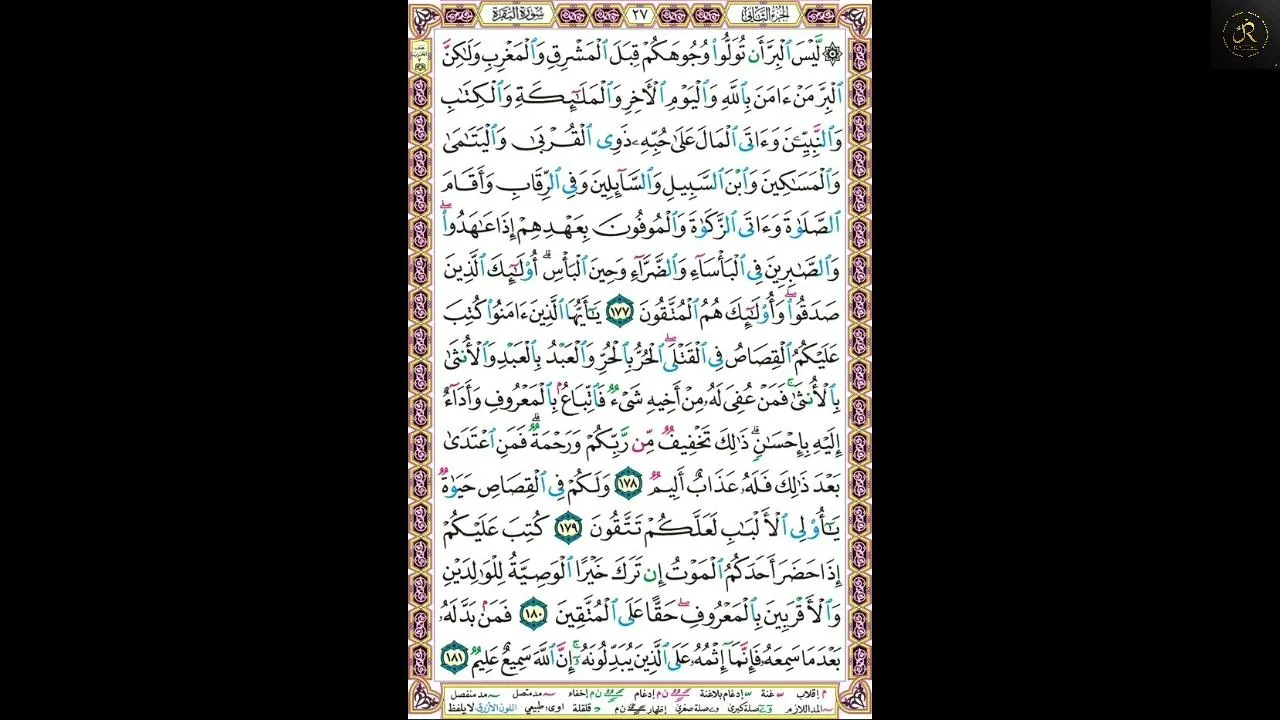 الجزء الثاني ٢٧ سورة البقرة
۞ لَّيۡسَ ٱلۡبِرَّ أَن تُوَلُّواْ وُجُوهَكُمۡ قِبَلَ ٱلۡمَشۡرِقِ وَٱلۡمَغۡرِبِ وَلَٰكِنَّ
ٱلۡبِرَّ مَنۡ ءَامَنَ بِٱللَّهِ وَٱلۡيَوۡمِ ٱلۡأٓخِرِ وَٱلۡمَلَٰٓئِكَةِ وَٱلۡكِتَٰبِ
وَٱلنَّبِيِّـۧنَ وَءَاتَى ٱلۡمَالَ عَلَىٰ حُبِّهِۦ ذَوِي ٱلۡقُرۡبَىٰ وَٱلۡيَتَٰمَىٰ
وَٱلۡمَسَٰكِينَ وَٱبۡنَ ٱلسَّبِيلِ وَٱلسَّآئِلِينَ وَفِي ٱلرِّقَابِ وَأَقَامَ
ٱلصَّلَوٰةَ وَءَاتَى ٱلزَّكَوٰةَ وَٱلۡمُوفُونَ بِعَهۡدِهِمۡ إِذَا عَٰهَدُواْۖ
وَٱلصَّٰبِرِينَ فِي ٱلۡبَأۡسَآءِ وَٱلضَّرَّآءِ وَحِينَ ٱلۡبَأۡسِۗ أُوْلَٰٓئِكَ ٱلَّذِينَ
صَدَقُواْۖ وَأُوْلَٰٓئِكَ هُمُ ٱلۡمُتَّقُونَ ١٧٧ يَٰٓأَيُّهَا ٱلَّذِينَ ءَامَنُواْ كُتِبَ
عَلَيۡكُمُ ٱلۡقِصَاصُ فِي ٱلۡقَتۡلَىۖ ٱلۡحُرُّ بِٱلۡحُرِّ وَٱلۡعَبۡدُ بِٱلۡعَبۡدِ وَٱلۡأُنثَىٰ
بِٱلۡأُنثَىٰۚ فَمَنۡ عُفِيَ لَهُۥ مِنۡ أَخِيهِ شَيۡءٞ فَٱتِّبَاعُۢ بِٱلۡمَعۡرُوفِ وَأَدَآءٌ
إِلَيۡهِ بِإِحۡسَٰنٖۗ ذَٰلِكَ تَخۡفِيفٞ مِّن رَّبِّكُمۡ وَرَحۡمَةٞۗ فَمَنِ ٱعۡتَدَىٰ
بَعۡدَ ذَٰلِكَ فَلَهُۥ عَذَابٌ أَلِيمٞ ١٧٨ وَلَكُمۡ فِي ٱلۡقِصَاصِ حَيَوٰةٞ
يَٰٓأُوْلِي ٱلۡأَلۡبَٰبِ لَعَلَّكُمۡ تَتَّقُونَ ١٧٩ كُتِبَ عَلَيۡكُمۡ
إِذَا حَضَرَ أَحَدَكُمُ ٱلۡمَوۡتُ إِن تَرَكَ خَيۡرًا ٱلۡوَصِيَّةُ لِلۡوَٰلِدَيۡنِ
وَٱلۡأَقۡرَبِينَ بِٱلۡمَعۡرُوفِۖ حَقًّا عَلَى ٱلۡمُتَّقِينَ ١٨٠ فَمَنۢ بَدَّلَهُۥ
بَعۡدَ مَا سَمِعَهُۥ فَإِنَّمَآ إِثۡمُهُۥ عَلَى ٱلَّذِينَ يُبَدِّلُونَهُۥٓۚ إِنَّ ٱللَّهَ سَمِيعٌ عَلِيمٞ ١٨١
م إقلاب غنة إدغام بلاغنة ن م إدغام ن م إخفاء مد متصل مد منفصل
المد اللازم صلة كبرى صلة صغرى إظهار ن م قلقلة اوى طبيعي اللون الأزرق لا يلفظ